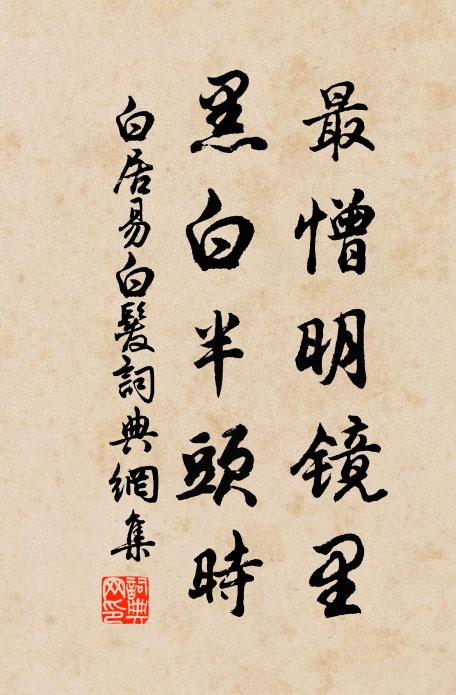 最憎明镜里
黑白半頭時
白居易白髮詞典網集
詞典网印